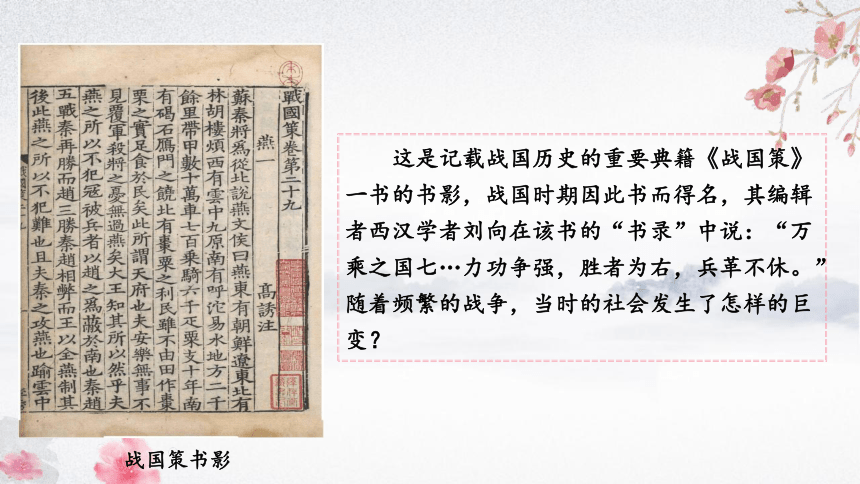 戰國策卷第二十九
燕一
高誘注
蘇秦將爲從北說燕文侯曰燕東有朝鮮遼東北有
林胡樓煩西有雲中九原南有呼沱易水地方二千
餘里帶甲數十萬車七百乘騎六千疋粟支十年南
有碣石鴈門之饒北有棗栗之利民雖不由田作棗
栗之實足食於民矣此所謂天府也夫安樂無事不
見覆軍殺將之憂無過燕矣大王知其所以然乎夫
燕之所以不犯寇被兵者以趙之爲蔽於南也秦趙
五戰秦再勝而趙三勝秦趙相弊而王以全燕制其
後此燕之所以不犯難也且夫秦之攻燕也踰雲中
这是记载战国历史的重要典籍《战国策》
一书的书影，战国时期因此书而得名，其编辑
者西汉学者刘向在该书的“书录”中说：“万
乘之国七…力功争强，胜者为右，兵革不休。”
随着频繁的战争，当时的社会发生了怎样的巨
变？
战国策书影